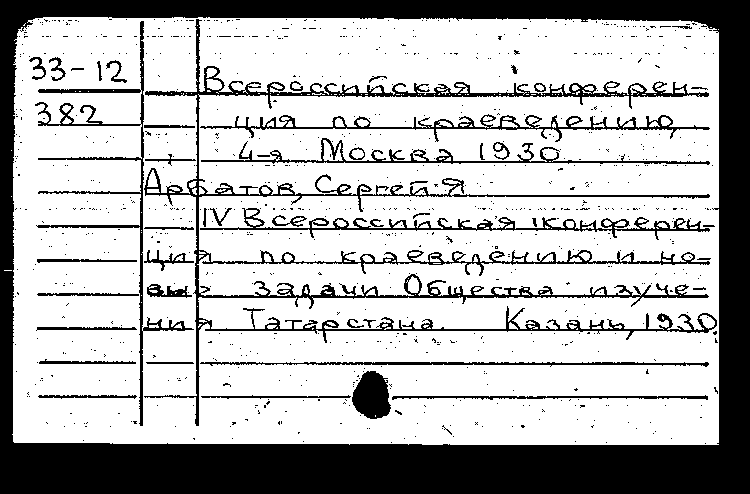 33-12
382
Всероссийская конферен-
ция по краеведению,
4-я Москва 1930
Арбатов, Сергей Я
IV Всероссийская конферен-
ция по краеведению и но-
вые задачи Общества изуче-
ния Татарстана. Казань, 1930